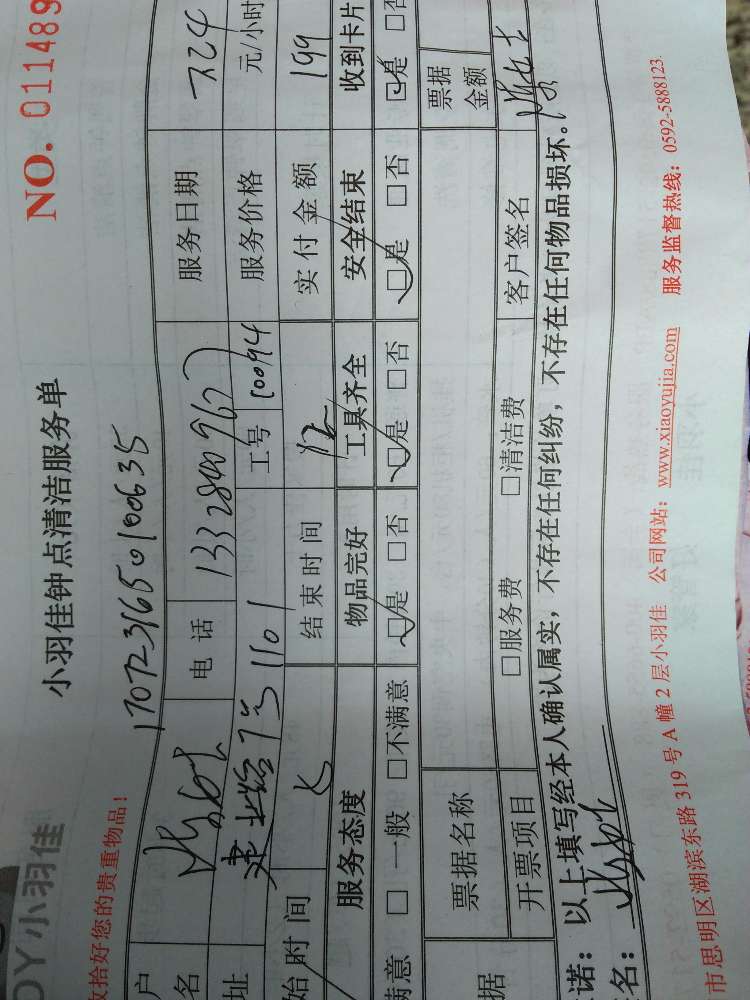 小羽佳钟点清洁服务单
OY小羽佳
NO. 011489
收拾好您的贵重物品！
17072316650100635
户 名 电话 13328909627 服务日期 7.24
址 1101 工号 10094 服务价格 元/小时
始时间 结束时间 12 实付金额 199
服务态度 物品完好 工具齐全 安全结束 收到卡片
满意 □一般 □不满意 □是 □否 □是 □否 □是 □否 □是 □否
据 票据名称 票据金额
开票项目 □服务费 □清洁费 客户签名
诺：以上填写经本人确认属实，不存在任何纠纷，不存在任何物品损坏。
名：
市思明区湖滨东路 319 号 A 幢 2 层小羽佳 公司网站：www.xiaoyujia.com 服务监督热线：0592-5888123